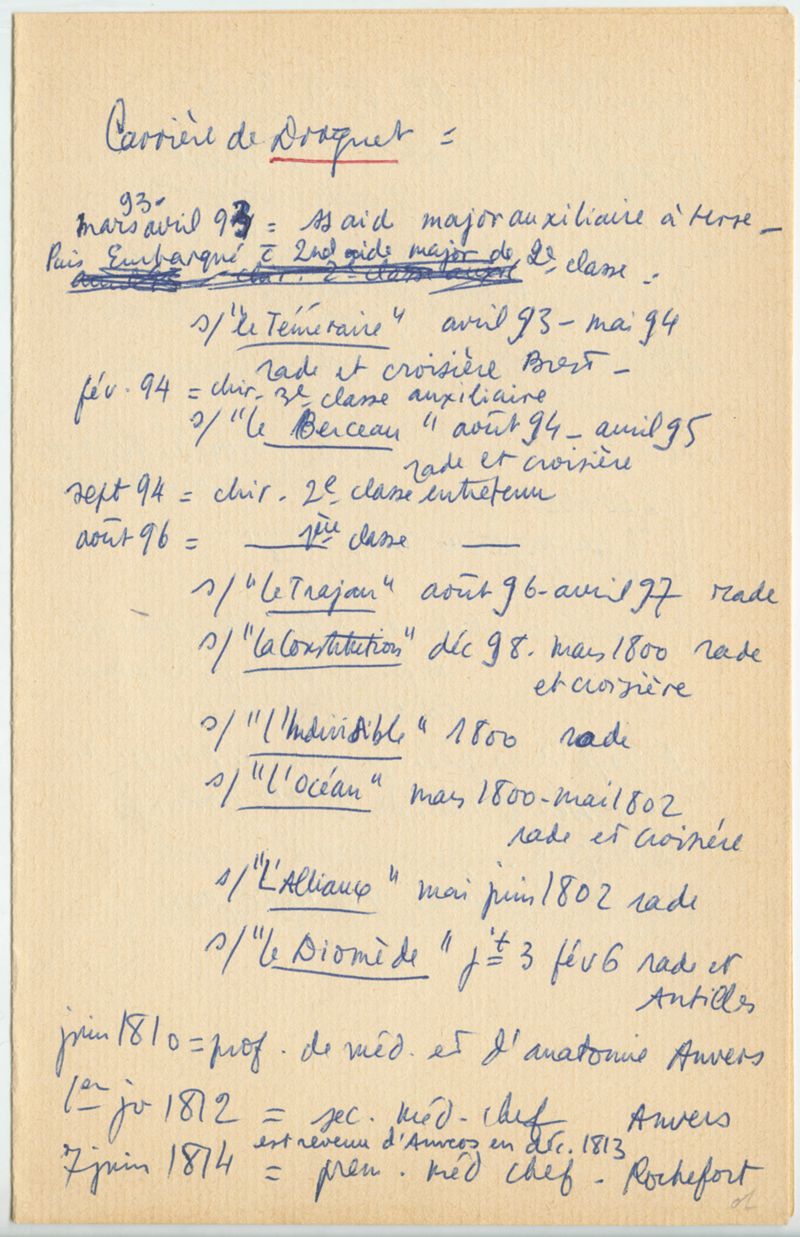 Carrière de Droguet =
93-
mars avril 93 = ss aid major auxiliaire à terre -
Puis Embarqué c 2nd aide major de 2e classe -
s/ "le Téméraire" avril 93 - mai 94
rade et croisière Brest -
fév. 94 = chir. 3e classe auxiliaire
s/ "le Berceau" août 94 - avril 95
rade et croisière
sept 94 = chir. 2e classe entretenu
août 96 = — 1ère classe —
s/ "le Trajan" août 96 - avril 97 rade
s/ "la Constitution" déc 98 - mars 1800 rade
et croisière
s/ "l'Indivisible" 1800 rade
s/ "l'Océan" mars 1800 - mai 1802
rade et croisière
s/ "L'Alliance" mai juin 1802 rade
s/ "le Diomède" jt 3 fév 6 rade et
Antilles
juin 1810 = prof. de méd. et d'anatomie Anvers
1er jr 1812 = sec. méd. chef Anvers
est revenu d'Anvers en déc. 1813
7 juin 1814 = prem. méd chef - Rochefort